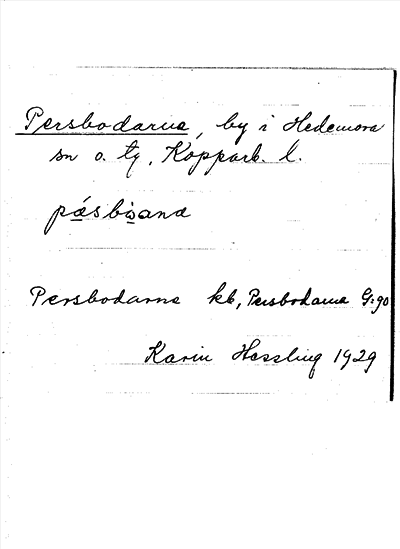 Persbodarna, by i Hedemora
sn o. tg, Kopparb. l.
pæsbo̤ana
Persbodarne kb, Persbodarna G:90
Karin Hessling 1929